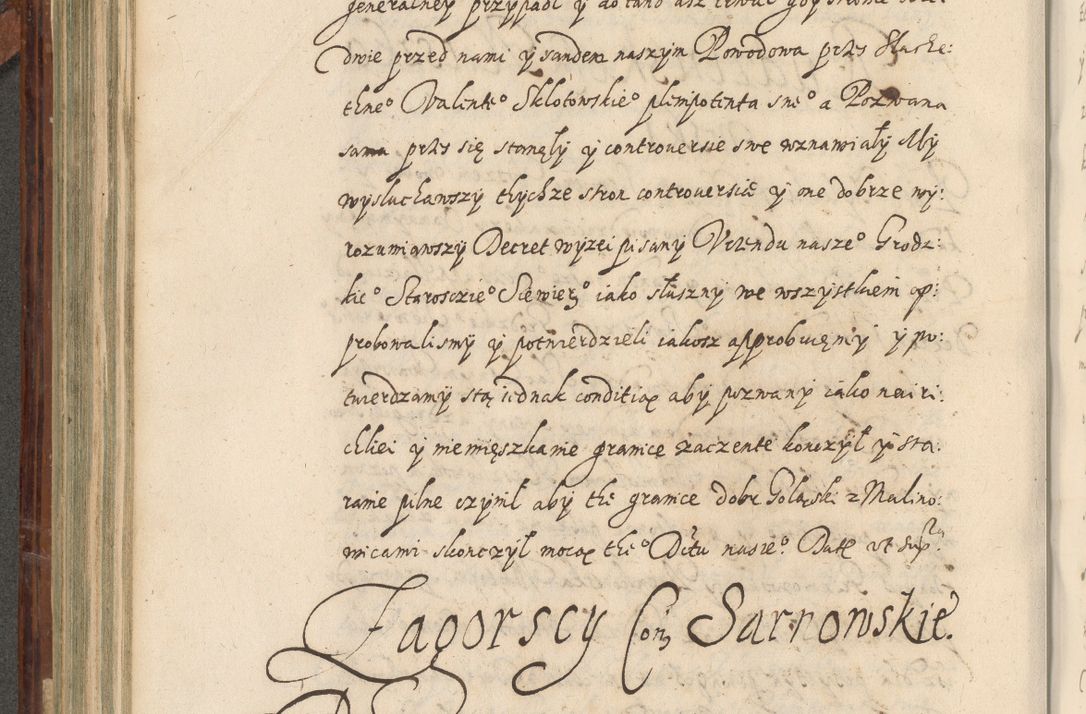 generalney przypadl y do tand asz trwac gdy strone obe:
dwie przed nami y sandem naszym Powodowa przs Slache:
tne° Valente° Sklotowskie° plenipotenta sne° a Pozwana
sama przs się stanęły y controversie swe wznawiały My
wysluchawszy tychze stron controversie y one dobrze wy:
rozumiawszy Decret wyzei pisany Vrzendu nasze° Grodz:
kie° Starosczie° Siewier° iako słuszny we wszystkiem ap:
probowalismy y potwierdzieli iakosz approbuięmy y po:
twierdzamy stą iednak conditią aby pozwany iako nairi:
chliei y niemięszkanie granice zaczente konczył y sta:
ranie pilne czynił aby the granice dobr Goląski z Malino:
wicami skonczył mocą the° Dctu nasze° Datt vt supra
Zagorscy Con Sarnowskie.